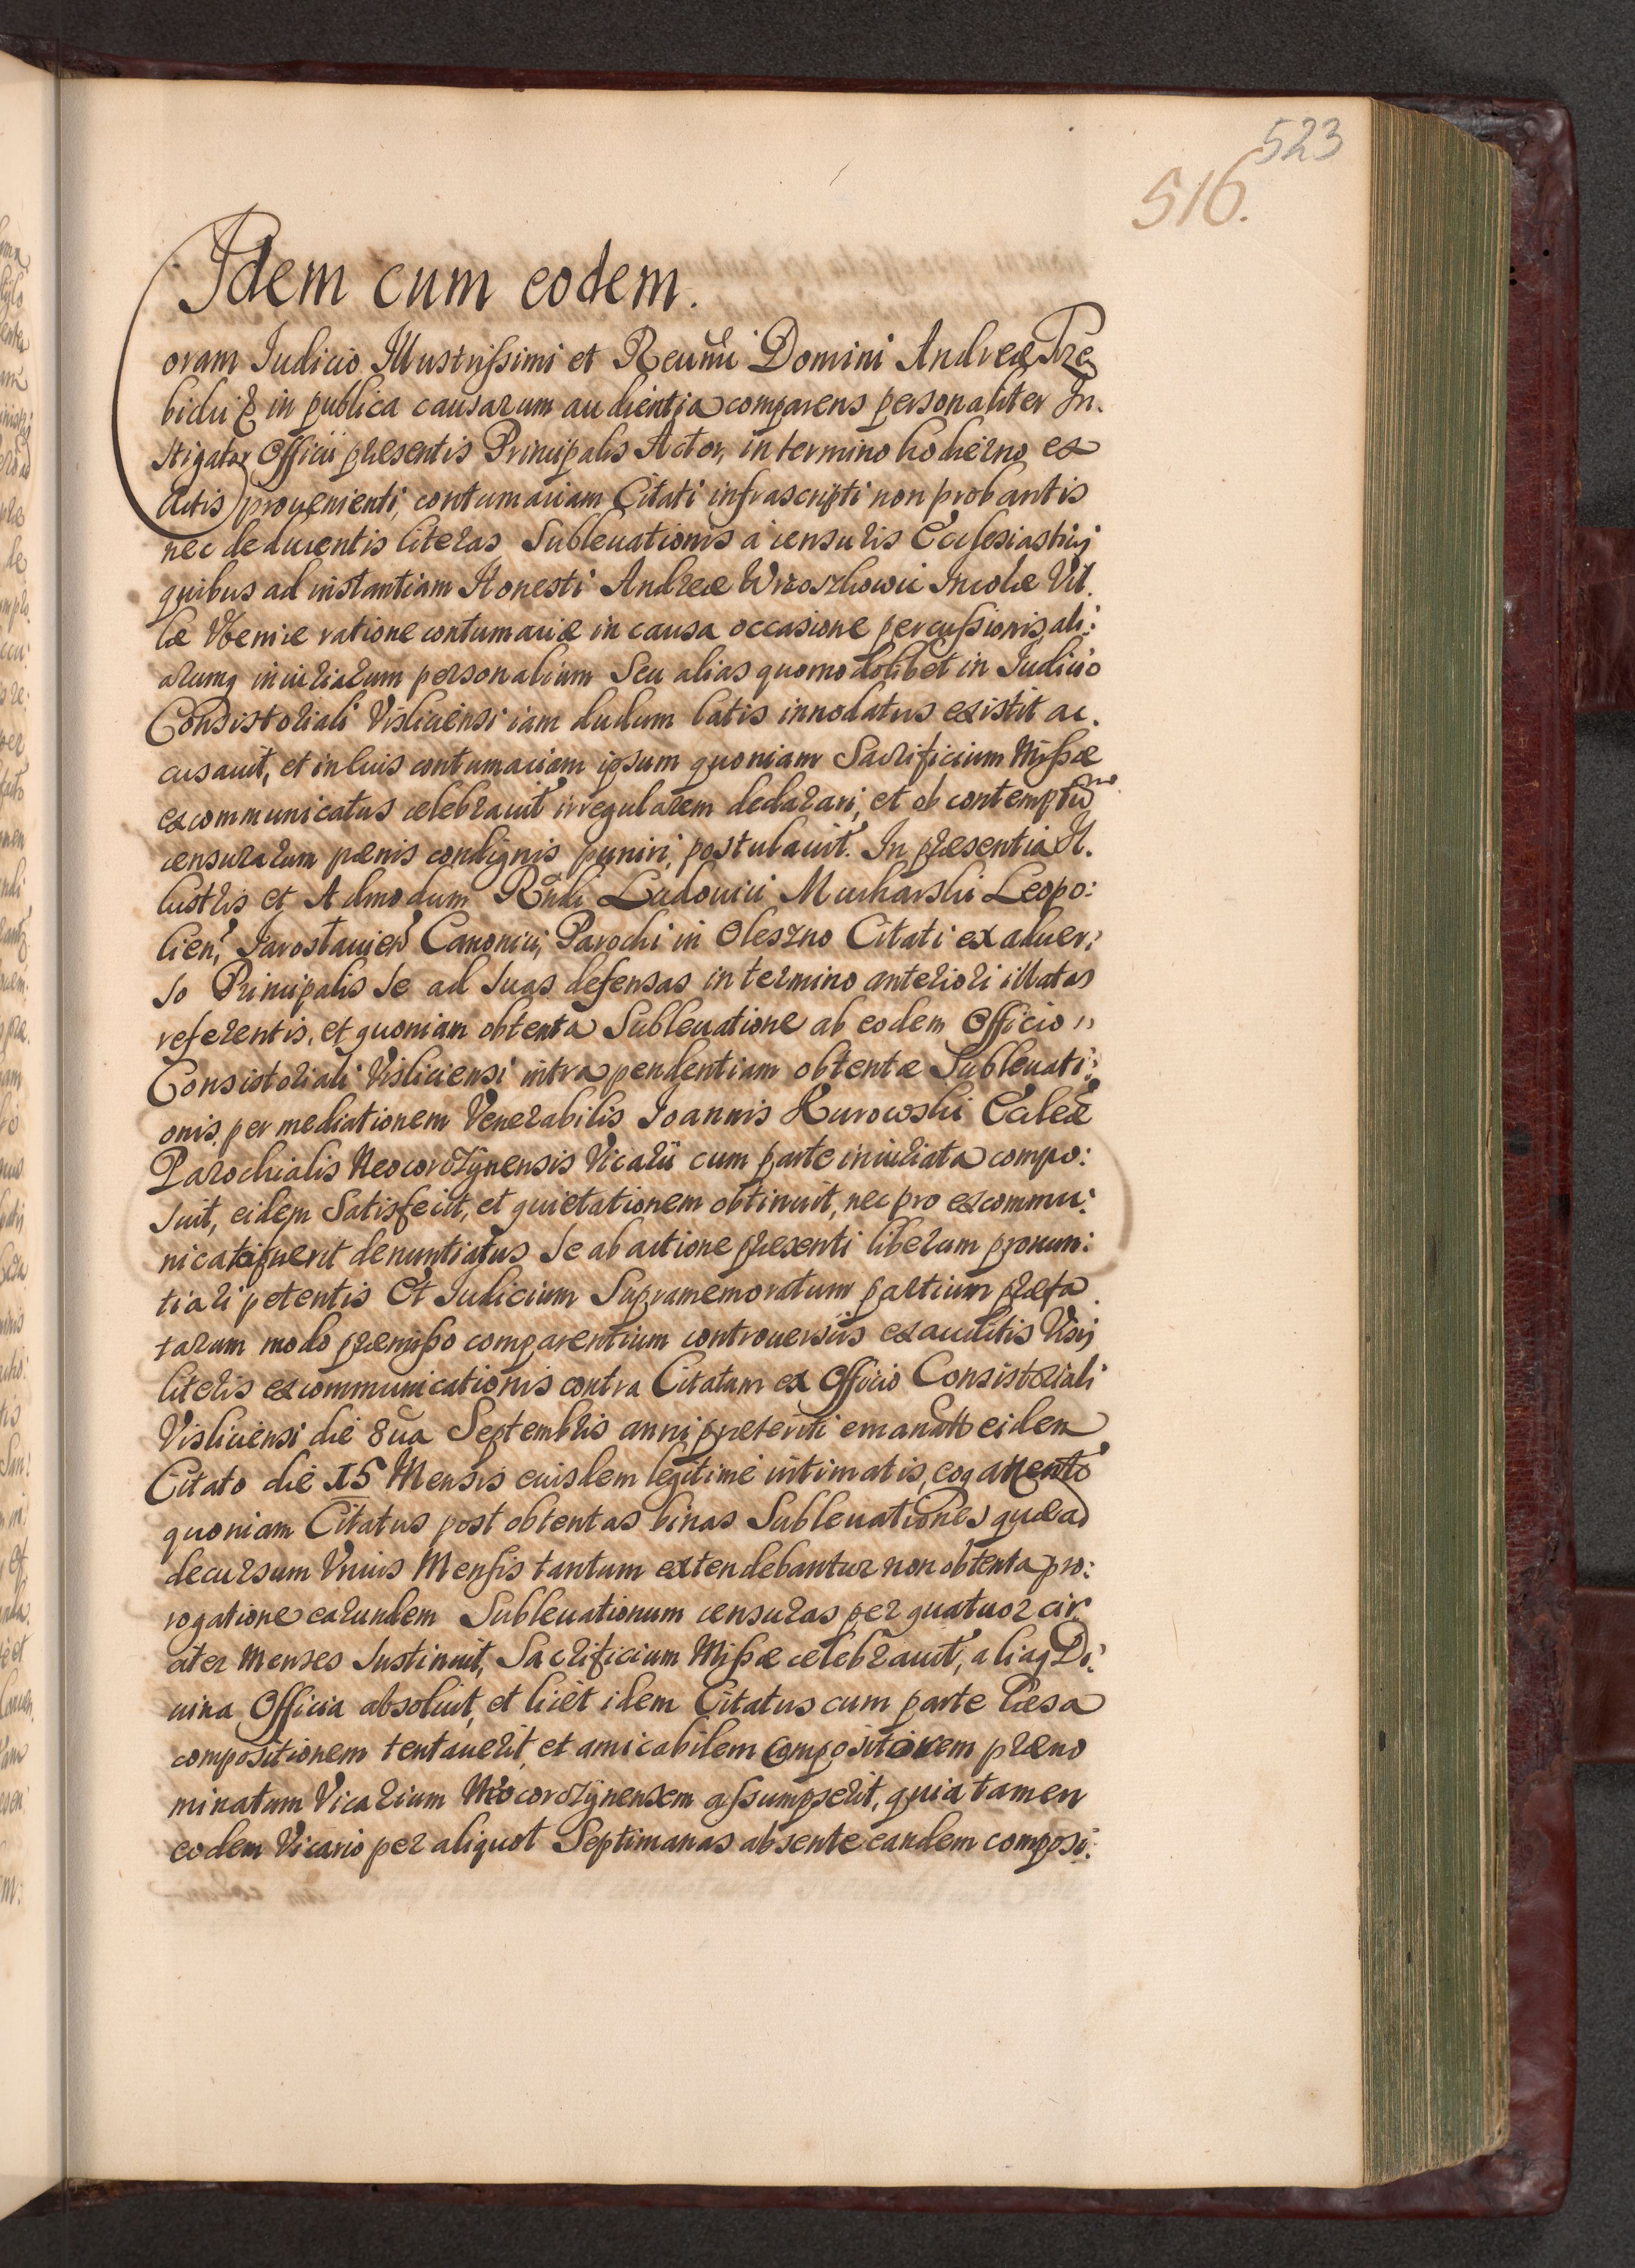 523
516.
Idem cum eodem.
Coram Iudicio Illustrissimi et Reuñdi Domini Andreæ Trze
bicki & in publica causarum audientia comparens personaliter In.
stigator Officii præsentis Principalis Actor, in termino hodierno ex
Actis prouenienti, contumaciam Citati infrascripti non probantis
nec deducentis literas Subleuationis à censuris Ecclesiasticis
quibus ad instantiam Honesti Andreæ Incolæ Vil.
læ ratione contumaciæ in causa occasione percussionis, ali:
arumq iniuriarum personalium Seu alias quomodolibet in Iudicio
Consistoriali Visliciensi iam dudum latis innodatus existit ac.
cusauit, et in huius contumaciam ipsum quoniam Sacrificium Missæ
excommunicatus celebrauit irregularem declarari, et ob contemptũ
censurarum pænis condignis puniri, postulauit. In præsentia Il.
lustris et Admodum Rñdi Ludouici Mucharski Leopo:
lien, Iaroslauien Canonici, Parochi in Oleszno Citati ex aduer:
so Principalis Se ad Suas defensas in termino anteriori illatas
referentis, et quoniam obtenta Subleuatione ab eodem Officio
Consistoriali Visliciensi intra pendentiam obtentæ Subleuati:
onis, per mediationem Venerabilis Ioannis Kurowski Eccleæ
Parochialis Neocorczynensis Vicarii cum parte iniuriata compo:
suit, eidem Satisfecit, et quietationem obtinuit, nec pro excommu:
nicato fuerit denuntiatus Se ab actione præsenti liberum pronun:
tiari petentis Et Iudicium Supramemoratum partium præfa
tarum modo præmisso comparentium controuersiis exauditis Visis
literis excommunicationis contra Citatum ex Officio Consistoriali
Visliciensi die 8ua Septembris anni præteriti emanatis eidem
Citato die 15 Mensis eiusdem legitime intimatis,
quoniam Citatus post obtentas binas Subleuationes quæ ad
decursum Vnius Mensis tantum extendebantur non obtenta pro:
rogatione earundem Subleuationum censuras per quatuor cir
citer Menses Sustinuit, Sacrificium Missæ celebrauit, aliaq Di:
uina Officia absoluit, et licet idem Citatus cum parte læsa
compositionem tentauerit, et amicabilem Compositorem præno
minatum Vicarium Neocorczynensem assumpserit, quia tamen
eodem Vicario per aliquot Septimanas absente eandem composi: